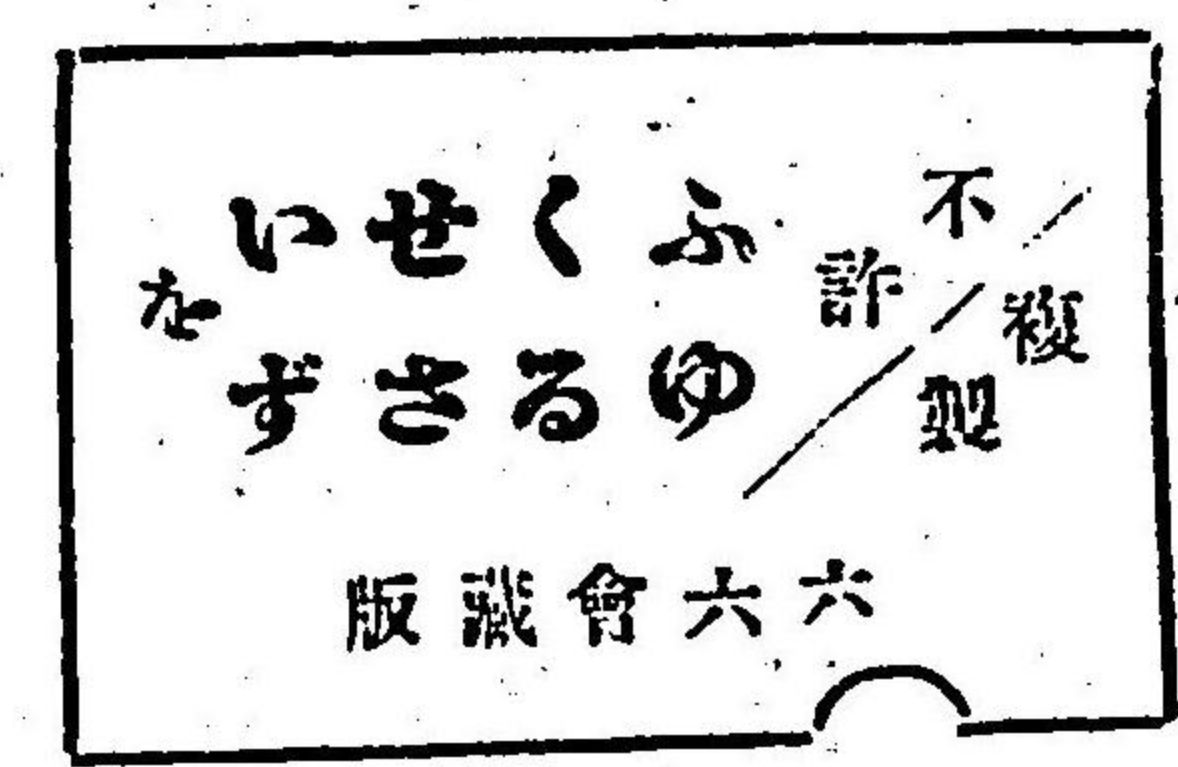 不許複製
ふくせいを
ゆるさず
六六會藏版